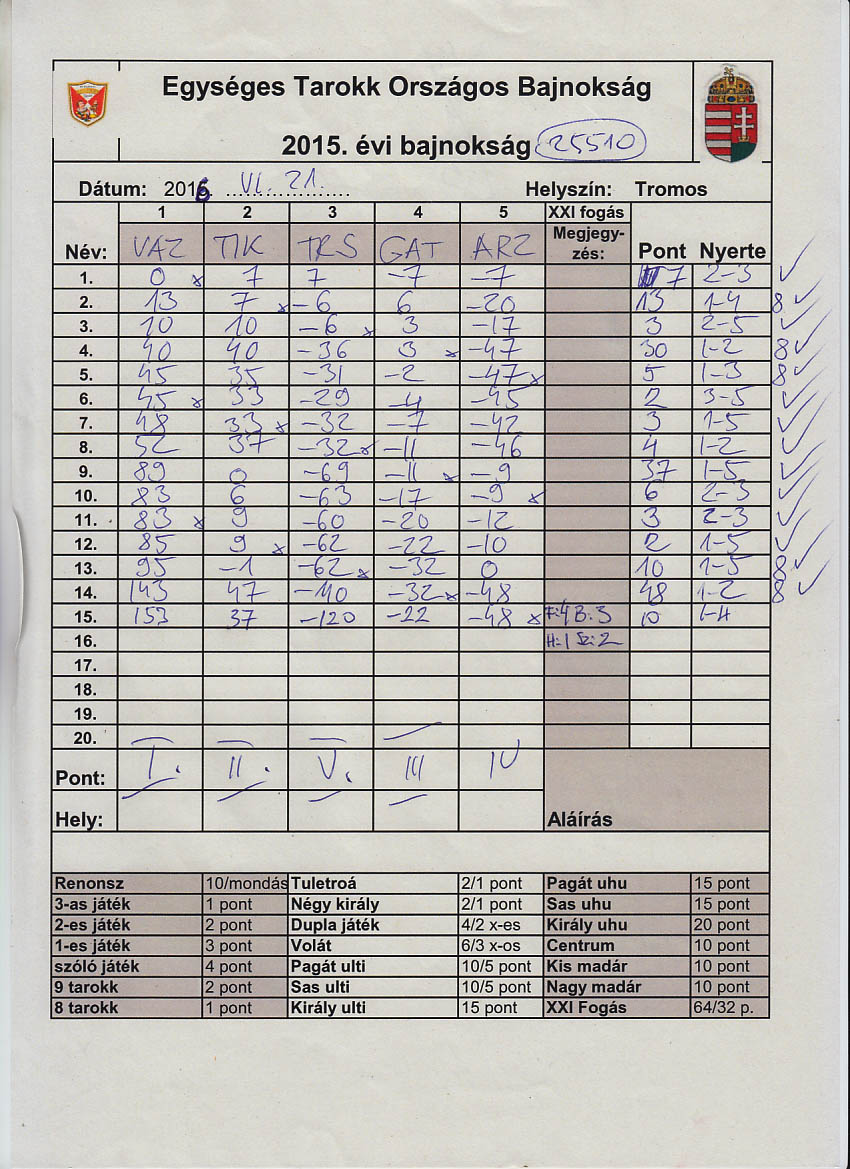 Egységes Tarokk Országos Bajnokság
2015. évi bajnokság 25510
Dátum: 2016. VI. 21. Helyszín: Tromos
1 2 3 4 5 XXI fogás
Név: VAZ TIK TRS GAT ARZ Megjegy-zés: Pont Nyerte
1. 0 x 7 7 -7 -7 7 2-3 ✓
2. 13 7 x -6 6 -20 13 1-4 8 ✓
3. 10 10 -6 x 3 -17 3 2-5 ✓
4. 40 40 -36 3 x -47 30 1-2 8 ✓
5. 45 35 -31 -2 -47 x 5 1-3 8 ✓
6. 45 x 33 -29 -4 -45 2 3-5 ✓
7. 48 33 x -32 -7 -42 3 1-5 ✓
8. 52 37 -32 x -11 -46 4 1-2 ✓
9. 89 0 -69 -11 x -9 37 1-5 ✓
10. 83 6 -63 -17 -9 x 6 2-3 ✓
11. 83 x 9 -60 -20 -12 3 2-3 ✓
12. 85 9 x -62 -22 -10 2 1-5 ✓
13. 95 -1 -62 x -32 0 10 1-5 8 ✓
14. 143 47 -110 -32 x -48 48 1-2 8 ✓
15. 153 37 -120 -22 -48 x F:4 B:3 10 1-4
16. H:1 Sz:2
17.
18.
19.
20.
Pont: I. II. V. III IV
Hely: Aláírás
Renonsz 10/mondás Tuletroá 2/1 pont Pagát uhu 15 pont
3-as játék 1 pont Négy király 2/1 pont Sas uhu 15 pont
2-es játék 2 pont Dupla játék 4/2 x-es Király uhu 20 pont
1-es játék 3 pont Volát 6/3 x-os Centrum 10 pont
szóló játék 4 pont Pagát ulti 10/5 pont Kis madár 10 pont
9 tarokk 2 pont Sas ulti 10/5 pont Nagy madár 10 pont
8 tarokk 1 pont Király ulti 15 pont XXI Fogás 64/32 p.